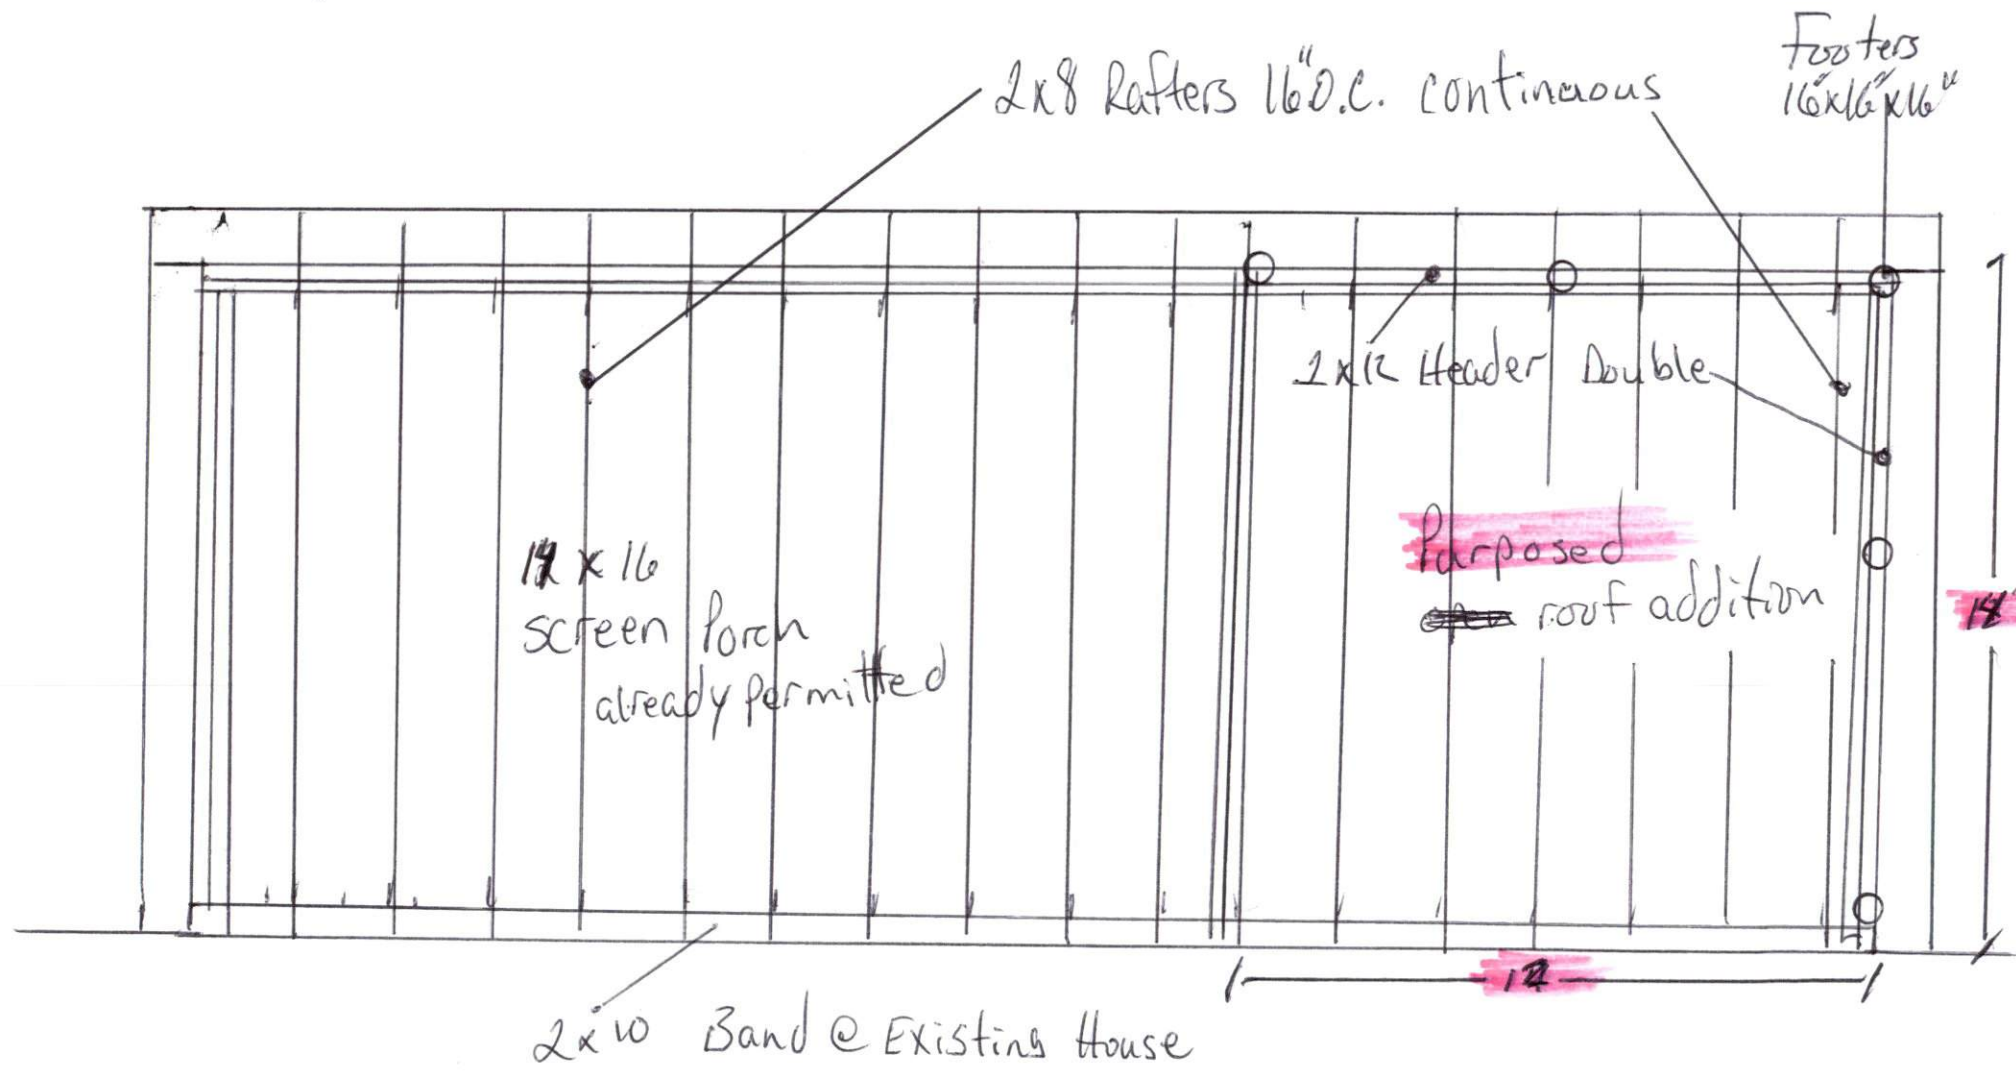 2x8 Rafters 16" O.C. continuous
Footers
16"x16"x16"
2x12 Header Double
x 16
screen Porch
already permitted
Purposed
roof addition
2x10 Band @ Existing House